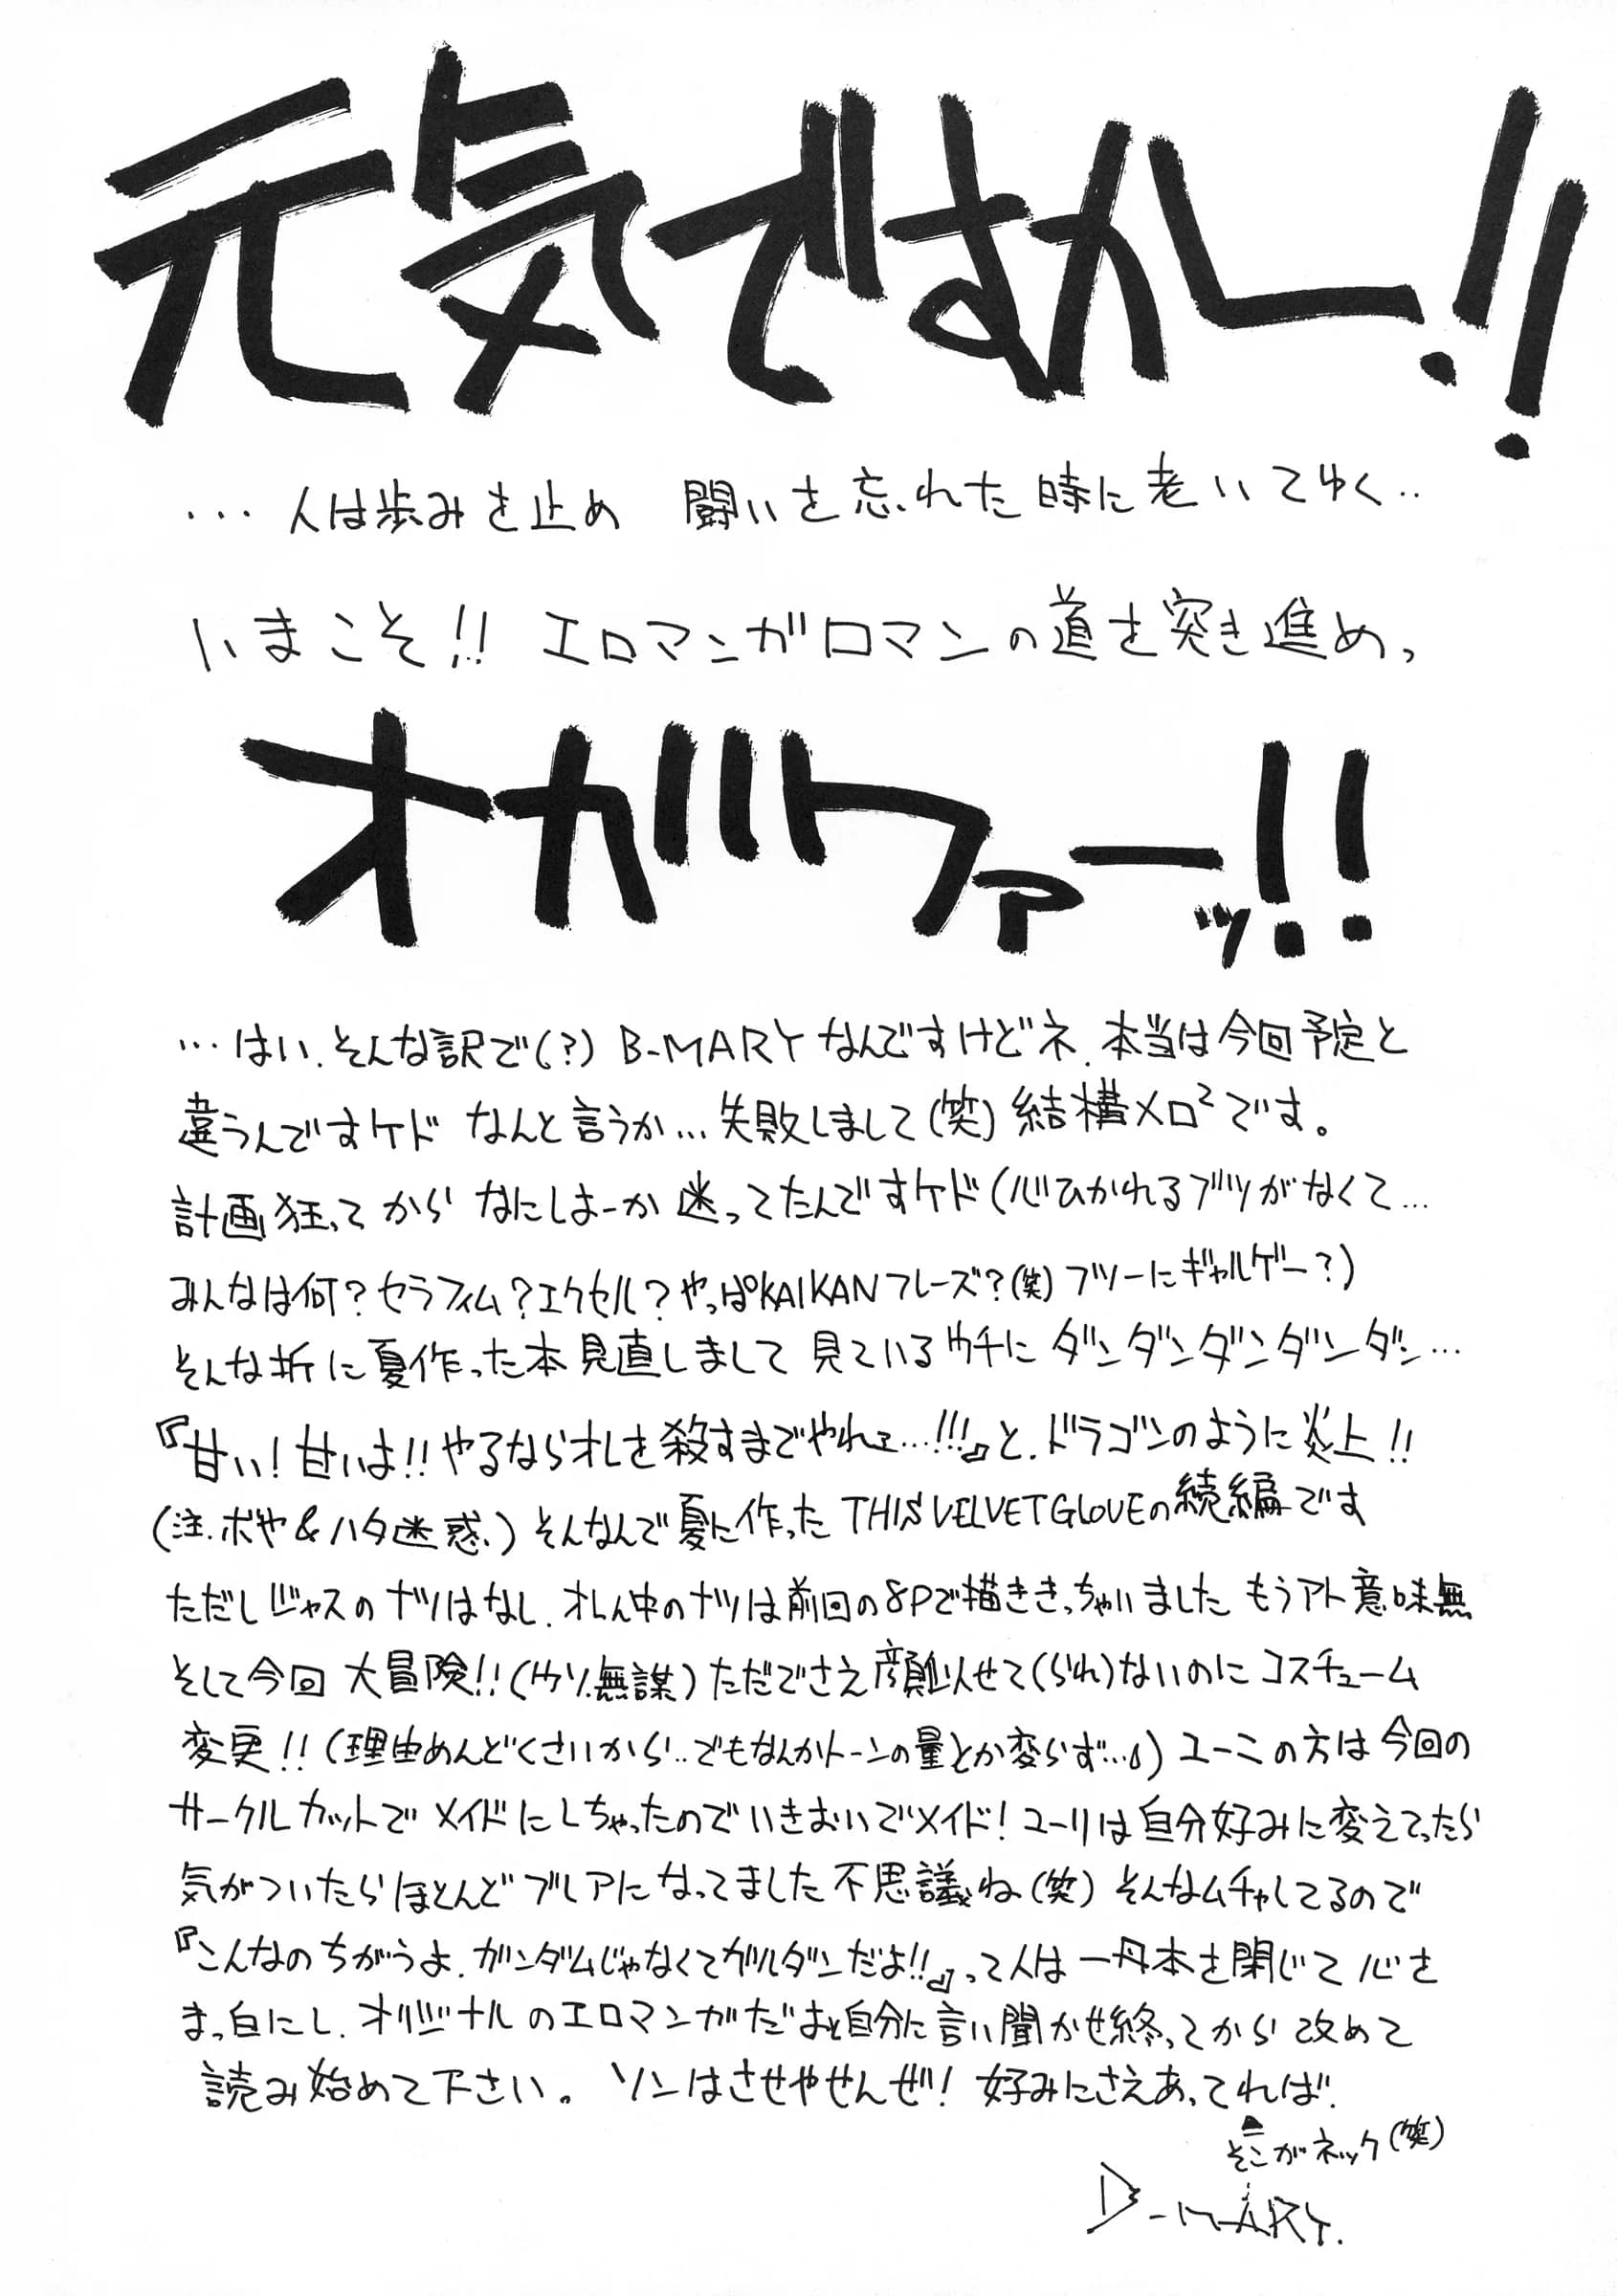 元気ですかー!!
…人は歩みを止め 闘いを忘れた時に老いてゆく‥
いまこそ!! エロマンガロマンの道を突き進めっ
オガワァーッ!!
…はい.そんな訳で(?) B-MARYなんですけどネ.本当は今回予定と
違うんですケド なんと言うか…失敗しまして(笑)結構メロ²です。
計画狂ってから なにしよーか迷ってたんですケド(心ひかれるブツがなくて…
みんなは何?セラフィム?エクセル?やっぱKAIKANフレーズ?(笑)フツーにギャルゲー?)
そんな折に夏作った本見直しまして 見ているウチに ダンダンダンダンダン…
『甘い!甘いよ!!やるならオレを殺すまでやれェ…!!!』と.ドラゴンのように炎上!!
(注.ボヤ&ハタ迷惑.)そんなんで夏に作った THIS VELVET GLOVEの続編です
ただしジャスのナツはなし.オレん中のナツは前回の8Pで描ききっちゃいました もうアト意味無
そして今回 大冒険!!(ウソ.無謀)ただでさえ顔似せて(られ)ないのに コスチューム
変更!!(理由めんどくさいから‥でもなんかトーンの量とか変らず…)ユーミの方は今回の
サークルカットで メイドにしちゃったのでいきおいでメイド!ユーリは自分好みに変えてったら
気がついたらほとんどブレアになってました不思議ね(笑)そんなムチャしてるので
『こんなのちがうよ.ガンダムじゃなくてガルダンだよ!!』って人は一丹本を閉じて心を
まっ白にし.オリジナルのエロマンガだよと自分に言い聞かせ終ってから改めて
読み始めて下さい。 ソンはさせやせんぜ!好みにさえあってれば.
そこがネック(笑)
B-MARY.